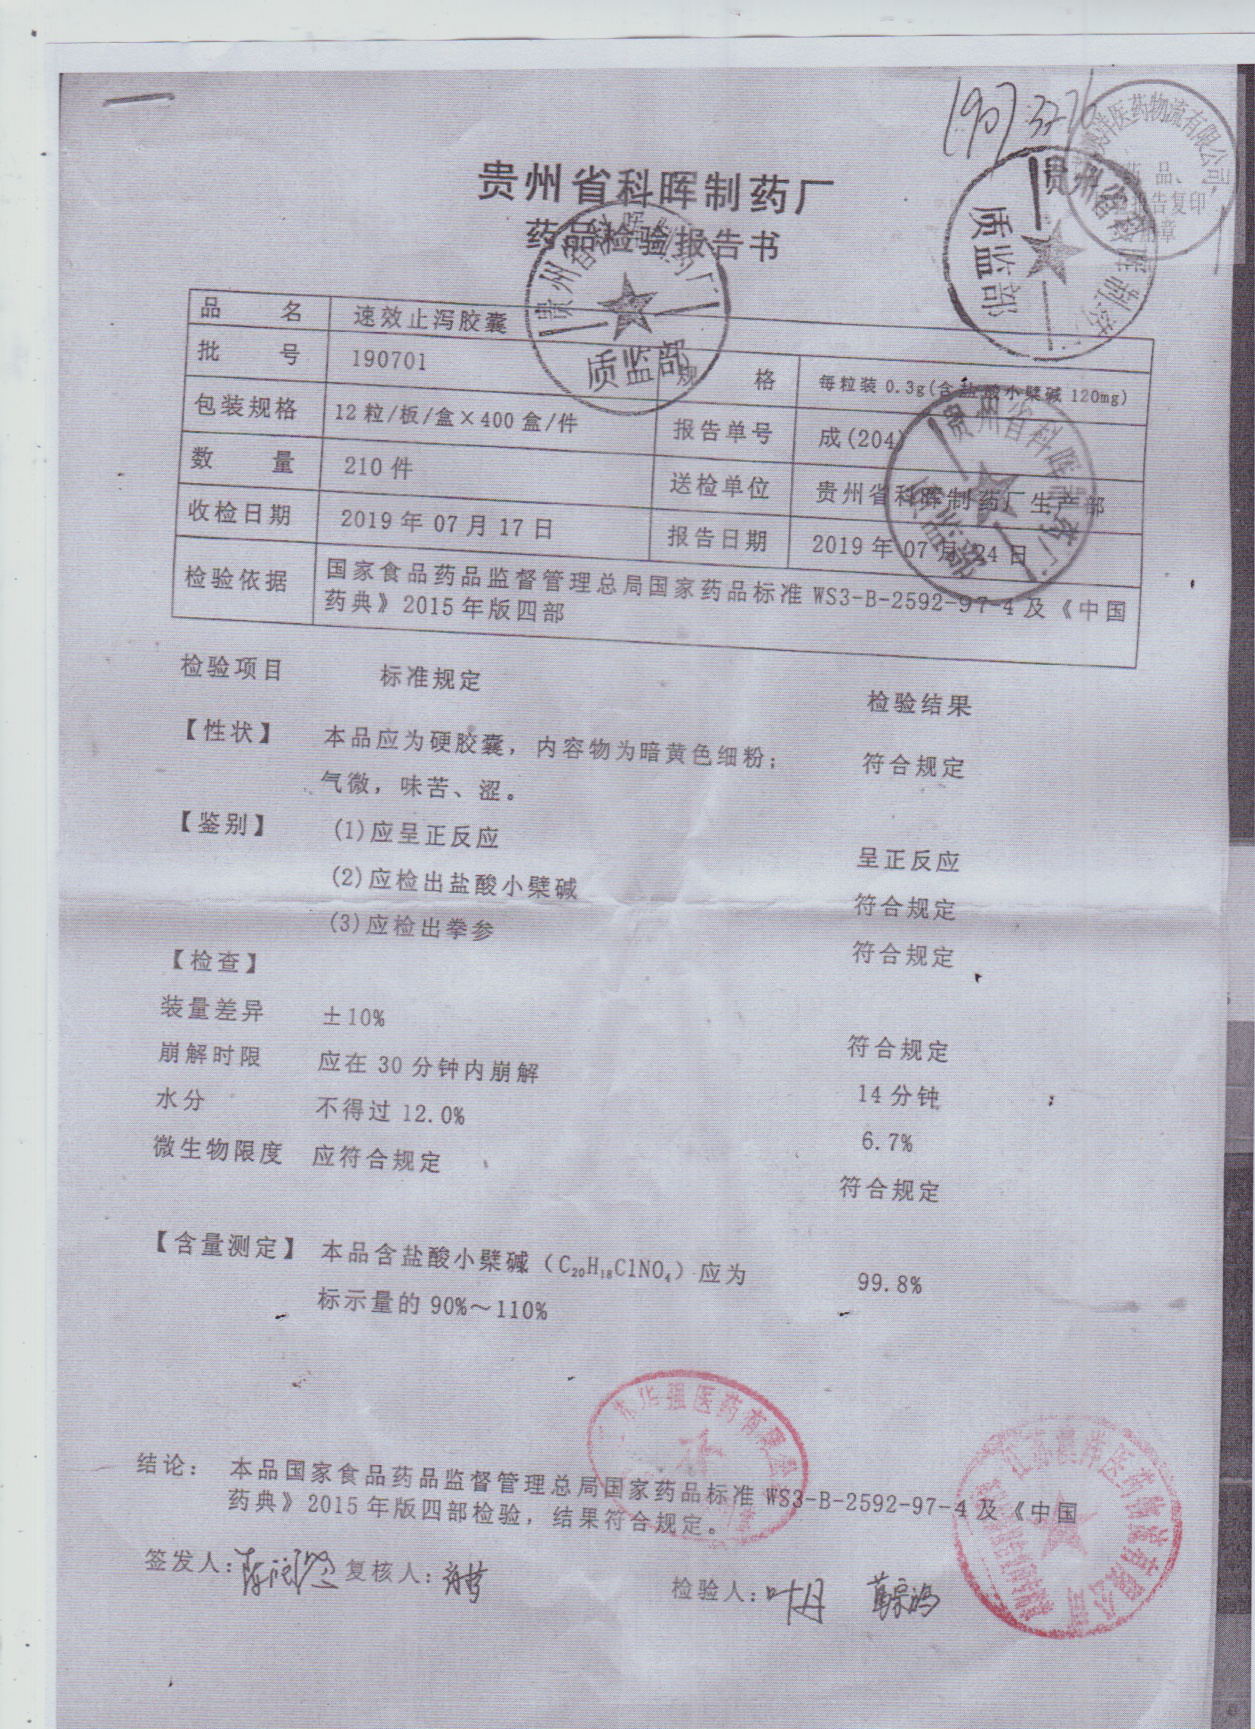 贵州省科晖制药厂
药品检验报告书
品 名 速效止泻胶囊
批 号 190701 规 格 每粒装 0.3g(含盐酸小檗碱 120mg)
包装规格 12粒/板/盒×400盒/件 报告单号 成(204)
数 量 210件 送检单位 贵州省科晖制药厂生产部
收检日期 2019年07月17日 报告日期 2019年07月24日
检验依据 国家食品药品监督管理总局国家药品标准 WS3-B-2592-97-4 及《中国
药典》2015年版四部
检验项目 标准规定 检验结果
【性状】 本品应为硬胶囊，内容物为暗黄色细粉； 符合规定
气微，味苦、涩。
【鉴别】 (1)应呈正反应 呈正反应
(2)应检出盐酸小檗碱 符合规定
(3)应检出拳参 符合规定
【检查】
装量差异 ±10% 符合规定
崩解时限 应在30分钟内崩解 14分钟
水分 不得过12.0% 6.7%
微生物限度 应符合规定 符合规定
【含量测定】 本品含盐酸小檗碱（C₂₀H₁₈ClNO₄）应为 99.8%
标示量的90%～110%
结论： 本品国家食品药品监督管理总局国家药品标准 WS3-B-2592-97-4 及《中国
药典》2015年版四部检验，结果符合规定。
签发人： 复核人： 检验人：叶丹
贵州省科晖制药厂
质监部
贵州省科晖制药厂
质监部
贵州省科晖制药厂
质监部
医药物流有限公司
江苏 医药物流有限公司
华强医药有限